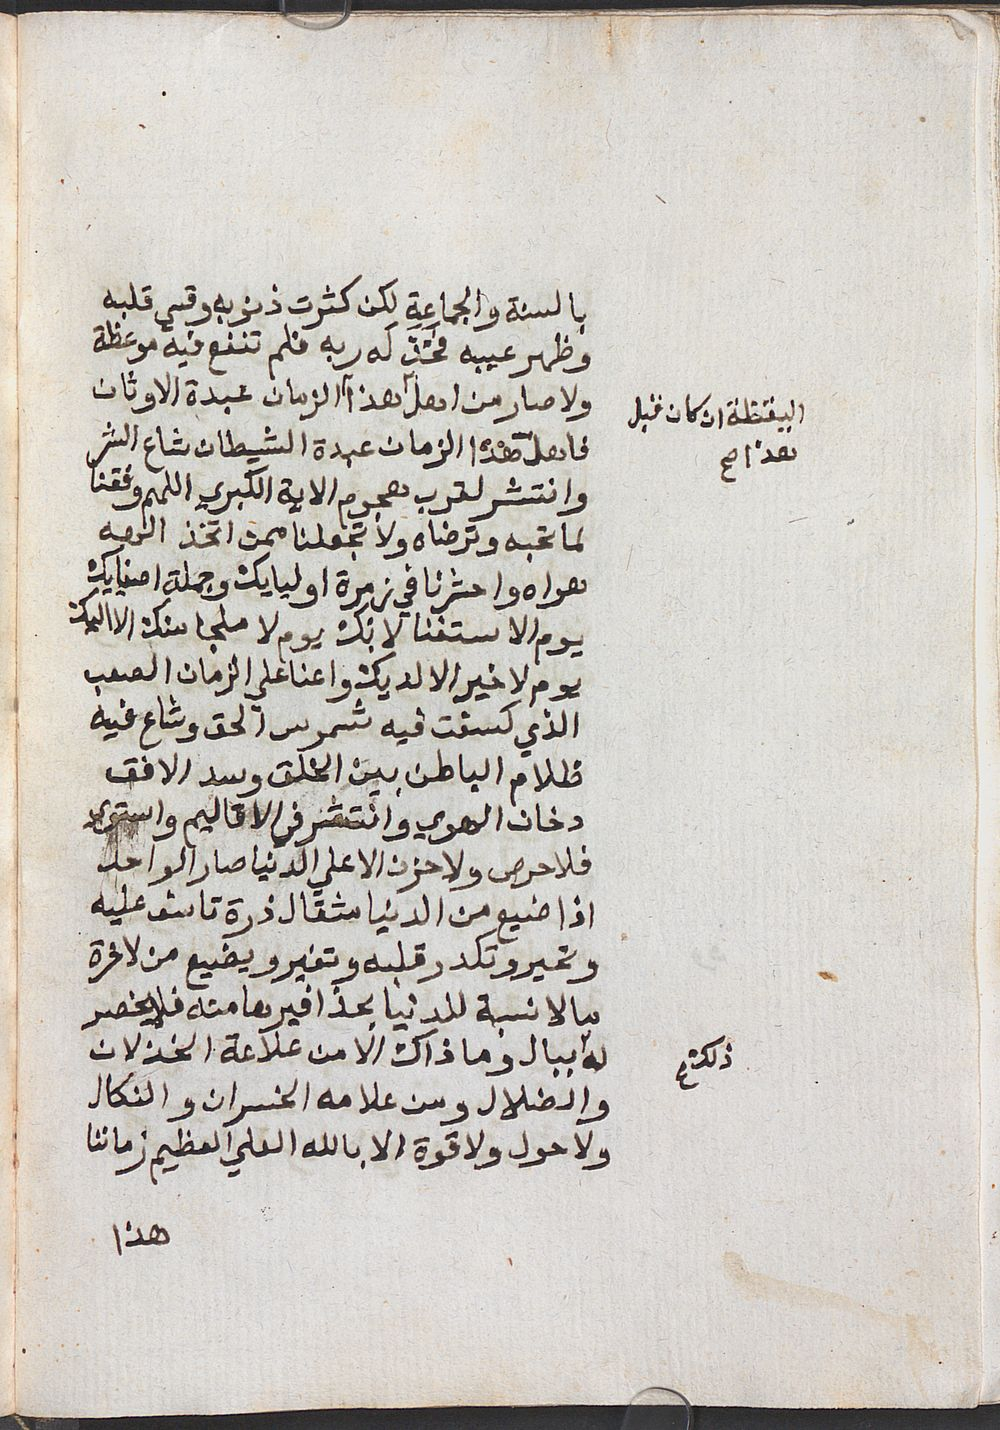 بالسنة والجماعة لكن كثرت ذنوبه وقسي قلبه
وظهر عيبه فخذله ربه فلم تنفع فيه موعظة
ولا صار من اهل هذا الزمان عبدة الاوثان
فاهل هذا الزمان عبدة الشيطان شاع الشر
وانتشر لقرب هجوم الاية الكبري اللهم وفقنا
لما تحبه وترضاه ولا تجعلنا ممن اتخذ الهه
هواه واحشرنا في زمرة اوليايك وجملة اصفيايك
يوم لا استغنا الا بك يوم لا ملجا منك الا اليك
يوم لا خير الا لديك واعنا علي الزمان الصعب
الذي كسفت فيه شموس الحق وشاع فيه
ظلام الباطن بين الخلق وسد الافق
دخان الهوي وانتشر في الاقاليم واستوي
فلا حرص ولا حزن الا علي الدنيا صار الواحد
اذا ضيع من الدنيا مثقال ذرة تاسف عليه
وتحير وتكدر قلبه وتغير ويضيع من لاخرة
ما لا نسبة للدنيا بحذافيرها منه فلا يخصر
له ببال وما ذاك الا من علاعة الخذلان
والضلال ومن علامه الخسران والنكال
ولا حول ولا قوة الا بالله العلي العظيم زماننا
هذا
اليقظة ان كان قبل
هذا صح
ذلك صح